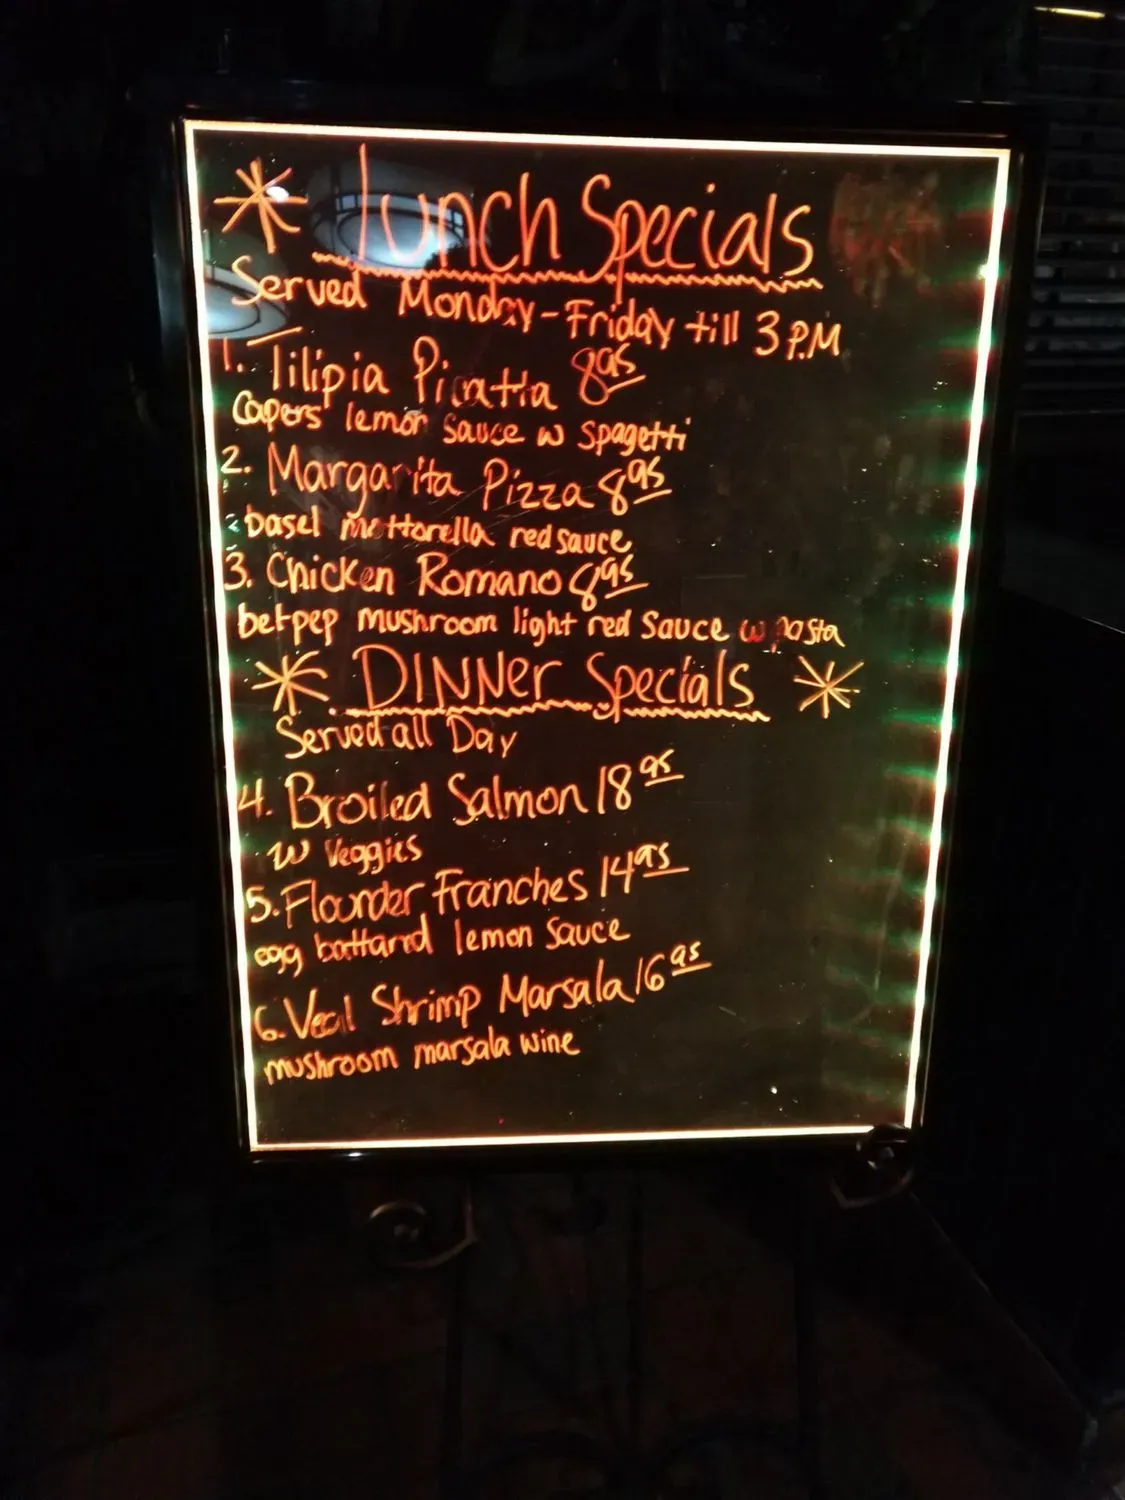 Lunch Specials
Served Monday-Friday till 3 P.M
1. Tilipia Picatta 8 95
Capers lemon sauce w spagetti
2. Margarita Pizza 8 95
basel mottorella red sauce
3. Chicken Romano 8 95
betpep mushroom light red sauce w pasta
DINNer Specials
Served all Day
4. Broiled Salmon 18 95
w veggies
5. Flounder Franches 14 95
egg battarrd lemon sauce
6. Veal Shrimp Marsala 16 95
mushroom marsala wine